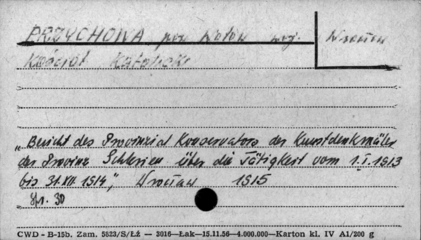 PRZYCHOWA pow Wołów woj. Wrocław
Kościół Katolicki
„Bericht des Provinzial Konservators der Kunstdenkmäler
der Provinz Schlesien über die Tätigkeit vom 1.I.1913
bis 31 XII 1914", Wrocław 1915
Str. 30
CWD - B-15b. Zam. 5823/S/Łź — 3016—Łak—15.11.56—4.000.000—Karton kl. IV A1/200 g